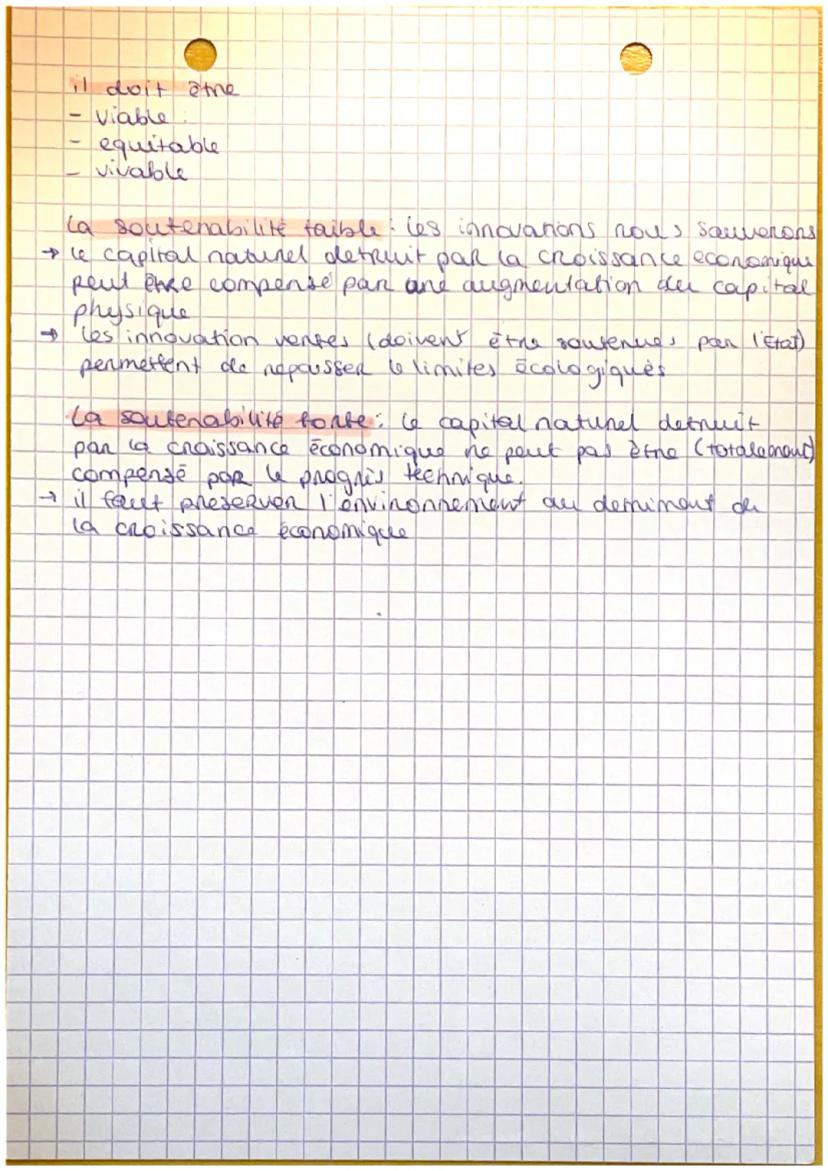 il doit être
- viable :
- equitable
- vivable
La soutenabilité faible : les innovations nous sauverons
→ le capital naturel detruit par la croissance economique
peut être compensé par une augmentation du capital
physique
→ les innovation vertes (doivent être soutenues par l'État)
permettent de repousser le limites écologiques
La soutenabilité forte : le capital naturel detruit
par la croissance économique ne peut pas être (totalement)
compensé par le progrès technique.
→ il faut preserver l'environnement au derniment de
la croissance économique